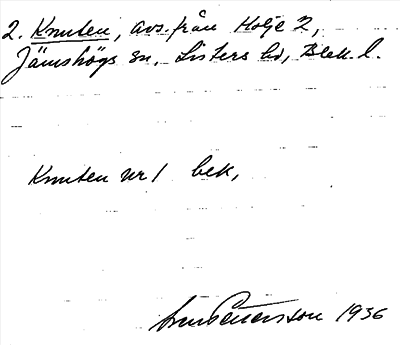 2. Knuten, avs. från Holje 2,
Jämshögs sn. Listers hd, Blek. l.
Knuten nr 1 bek,
Pettersson 1936